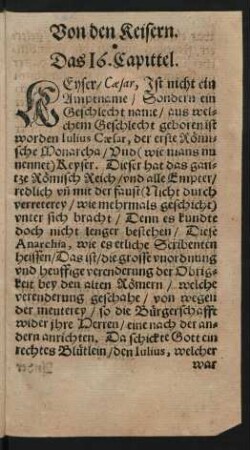 Von den Keisern.
Das 16. Capittel.
KEyser/ Cæsar, Ist nicht ein
Amptname/ Sondern ein
Geschlecht name/ aus wel-
chem Geschlecht geboren ist
worden Iulius Cæsar, der erste Römi-
sche Monarcha/ Vnd (wie mans nu
nennet) Keyser. Dieser hat das gan-
tze Römisch Reich/ vnd alle Empter/
redlich vñ mit der faust (Nicht durch
verreterey/ wie mehrmals geschicht)
vnter sich bracht/ Denn es kundte
doch nicht lenger bestehen/ Diese
Anarchia, wie es etliche Scribenten
heissen/ Das ist/ die grosse vnordnung
vnd heuffige verenderung der Obrig-
keit bey den alten Römern/ welche
verenderung geschahe/ von wegen
der meuterey/ so die Bürgerschafft
wider jhre Herren/ eine nach der an-
dern anrichten. Da schickte Gott ein
rechtes Blütlein/ den Iulius, welcher
war